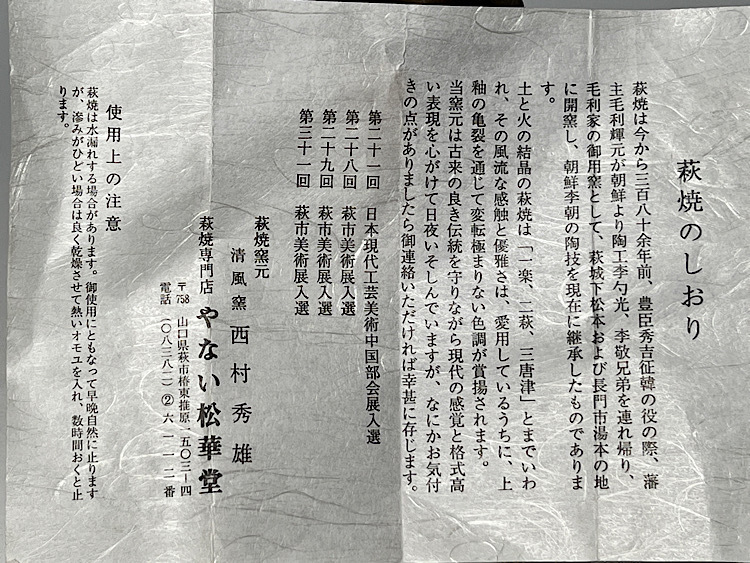 萩焼のしおり
萩焼は今から三百八十余年前、豊臣秀吉征韓の役の際、藩
主毛利輝元が朝鮮より陶工李勺光、李敬兄弟を連れ帰り、
毛利家の御用窯として、萩城下松本および長門市湯本の地
に開窯し、朝鮮李朝の陶技を現在に継承したものでありま
す。
土と火の結晶の萩焼は「一楽、二萩、三唐津」とまでいわ
れ、その風流な感触と優雅さは、愛用しているうちに、上
釉の亀裂を通じて変転極まりない色調が賞揚されます。
当窯元は古来の良き伝統を守りながら現代の感覚と格式高
い表現を心がけて日夜いそしんでいますが、なにかお気付
きの点がありましたら御連絡いただければ幸甚に存じます。
第二十一回 日本現代工芸美術中国部会展入選
第二十八回 萩市美術展入選
第二十九回 萩市美術展入選
第三十一回 萩市美術展入選
萩焼窯元
清風窯 西村秀雄
萩焼専門店 やない松華堂
〒758 山口県萩市椿東椎原一五〇三―四
電話(〇八三八二)②六一一二番
使用上の注意
萩焼は水漏れする場合があります。御使用にともなって早晩自然に止ります
が、滲みがひどい場合は良く乾燥させて熱いオモユを入れ、数時間おくと止
ります。